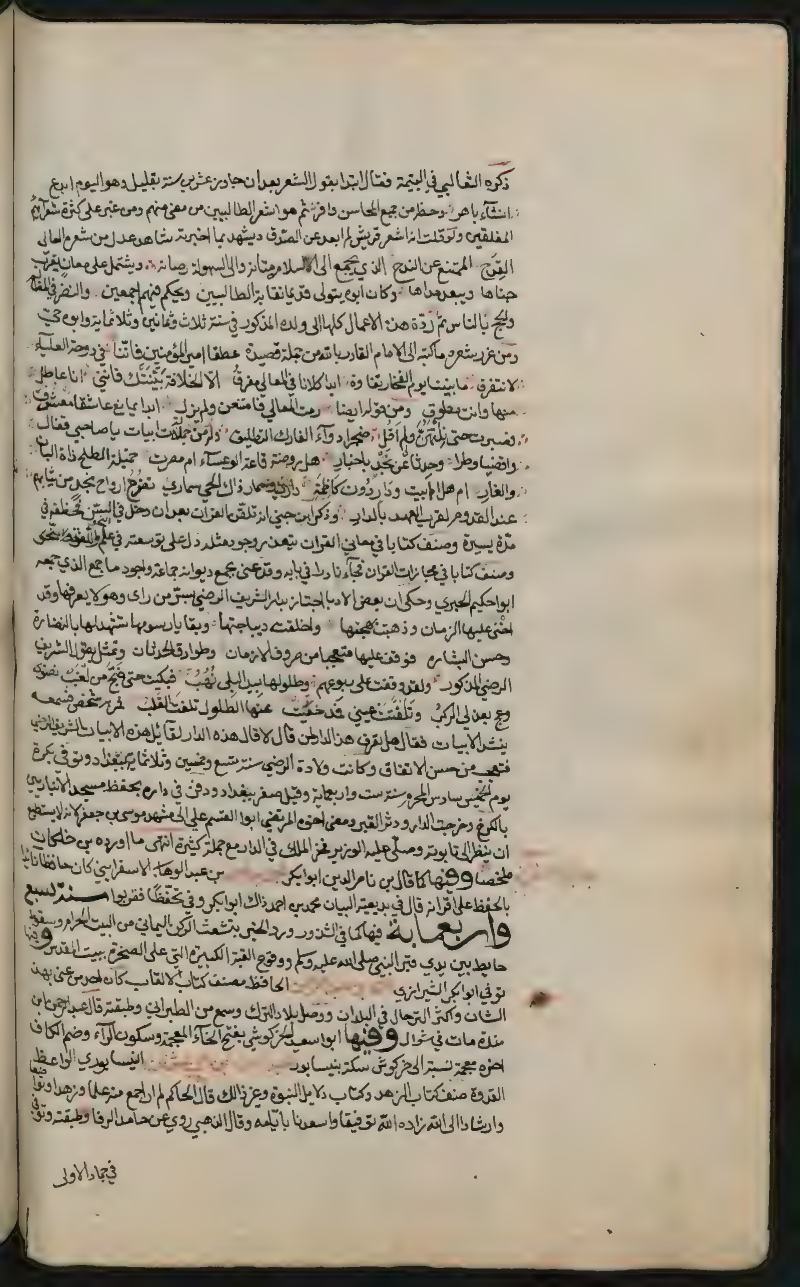 ذكره الثعالبي في اليتيمة فقال ابتدا بقول الشعر بعد ان جاوز عشر سنين بقليل وهو اليوم ابدع
انشاء باهر وحظ من جميع المحاسن وافر ثم هو اشعر الطالبيين من مضى منهم ومن غبر على كثرة شعرائهم
المفلقين ولو قلت انه اشعر قريش لم ابعد عن الصدق ويشهد بما اخبرته شاهد عدل من شعره العالي
القدح الممتنع عن القدح الذي يجمع الى السلامة متانة والى السهولة رصانة ويشتمل على معان يقرب
جناها ويبعد مداها وكان ابوه يتولى قديما نقابة الطالبيين ويحكم فيهم اجمعين والنظر في المظالم
والحج بالناس ثم ردة هذه الاعمال كلها الى ولده المذكور في سنة ثلاث وثمانين وثلاثماية وابوه حي
ومن غرر شعره ما كتبه الى الامام القادر بالله من جملة قصيدة عطفا امير المؤمنين فاننا في دوحة العلياء
لا نتفرق ما بيننا يوم الفخار تفاوة ابدا كلانا في المعالي معرق الا الخلافة ميزتك فانني انا عاطل
منها وانت مطوق ومن قوله ايضا رمت المعالي فامتنعن ولم يزل ابدا يمانع عاشقا معشوق
وصبرت حتى نلتهن ولم اقل ضجرا دواء الفارك التطليق وله من جملة ابيات يا صاحبي قفا لي
واقضيا وطرا وحدثاني عن نجد باخبار هل روضة قاعة الوعساء ام مطرت خميلة الطلح ذاة البان
والغار ام هل ابيت ودار دون كاظمة داري وسمار ذاك الحي سماري تفوح ارواح نجد من ثيابهم
عند القدوم لقرب العهد بالدار وذكر ابن جني انه تلقن القران بعد ان دخل في السن فحفظه في
مدة يسيرة وصنف كتابا في معاني القران يتعذر وجود مثله دل على توسعه في علم النحو واللغة
وصنف كتابا في مجازات القران فجاء نادرا في بابه وقد عنى بجمع ديوانه جماعة واجود ما جمع الذي جمعه
ابو احكيم الخبري وحكى ان بعض الادبا اجتاز بدار الشريف الرضي بسر من راى وهو لا يعرفها وقد
اخنى عليها الزمان وذهبت بهجتها واخلقت ديباجتها وبقايا رسومها تشهد لها بالنضارة
وحسن البشاره فوقف عليها متعجبا من صروف الازمان وطوارق الحدثان وتمثل بقول الشريف
الرضي المذكور ولقد وقفت على ربوعهم وطلولها بيد البلى نهب فبكيت حتى ضج من لغب نضوى
وعج بعدلي الركب وتلفتت عيني فمذ خفيت عنها الطلول تلفت القلب فمر به شخص فسمعه
ينشد الابيات فقال هل تعرف هذا الدار لمن قال لا قال هذه الدار لقايل هذه الابيات الشريف الرضي
فتعجب من حسن الاتفاق وكانت ولادة الرضي سنة تسع وخمسين وثلاثماية ببغداد وتوفي بكرة
يوم الخميس سادس المحرم سنة ست واربعماية وقيل صفر ببغداد ودفن في داره بخط مسجد الانباريين
بالكرخ وخربت الدار ودثر القبر ومضى اخوه المرتضي ابو القسم علي الى مشهد موسى بن جعفر لانه لا يستطيع
ان ينظر الى تابوته وصلى عليه الوزير فخر الملك في الدار مع جملة كثيرة انتهى ما اورده بن خلكان
ملخصا وفيها كما قال بن ناصر الدين ابو ابكر بن عبد الوهاب الاسفراييني كان حافظا
بالحفظ على اقرانه قال في بديعية البيان محمد بن احمد ذاك ابو ابكر وفي تحفظا فقربوا سنة سبع
واربعماية فيها كما في الشذور ورد الخبر بتشعث الركن اليماني من البيت الحرام وسقوط
حايط بين يدي قبر النبي صلى الله عليه وسلم ووقوع القبة الكبيرة التي على الصخرة ببيت المقدس وفيها
توفي ابو ابكر الشيرازي الحافظ مصنف كتاب الالقاب كان احد من عني بهذا
الشان واكثر الترحال في البلدان ووصل بلاد الترك وسمع من الطبراني وطبقته قال عبد الرحمن ابن
مندة مات في شوال وفيها ابو سعيد الخركوشي بفتح الخاء المعجمة وسكون الراء وضم الكاف
اخره معجمة نسبة الى خركوش سكة بنيسابور النيسابوري الواعظ
القدوة صنف كتاب الزهد وكتاب دلايل النبوة وغير ذالك قال الحاكم لم ار اجمع منه علما وزهدا وتواضعا
وارشادا الى الله زاده الله توفيقا واسعدنا بايامه وقال الذهبي روى عن حامد الرفا وطبقته وتوفي
في جماد الاولى